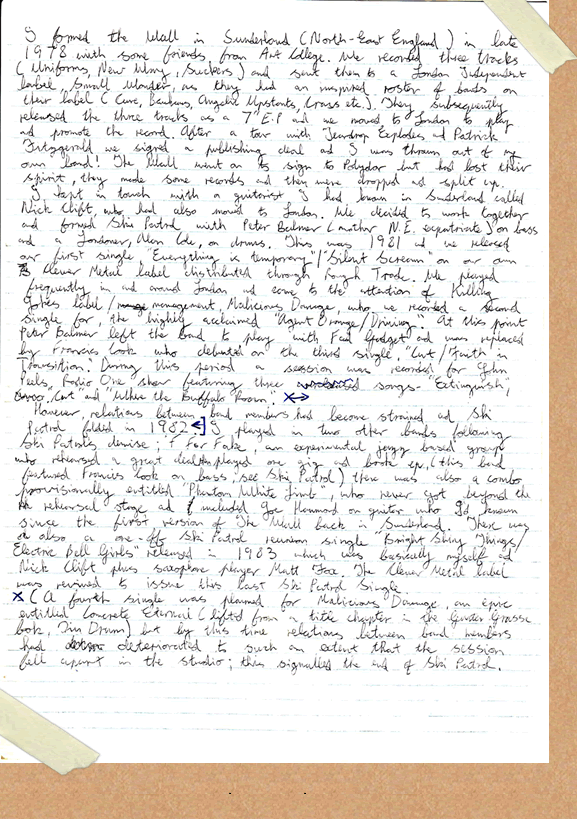 I formed the Wall in Sunderland (North-East England) in late
1978 with some friends from Art College. We recorded three tracks
(Uniforms, New Way, Suckers) and sent them to a London Independent
label Small Wonder, as they had an inspired roster of bands on
their label (Cure, Bauhaus, Angelic Upstarts, Crass etc.). They subsequently
released the three tracks as a 7" E.P ad we moved to London to play
ad promote the record. After a tour with Teardrop Explodes ad Patrick
Fitzgerald we signed a publishing deal and I was thrown out of my
own band! The Wall went on to sign to Polydor but had lost their
spirit, they made some records ad they were dropped ad split up.
I kept in touch with a guitarist I had known in Sunderland called
Nick Clift, who had also moved to London. We decided to work together
and formed Ski Patrol with Peter Balmer (another N.E. expatriate) on bass
and a Londoner, Alan Cole, on drums. This was 1981 ad we released
our first single, "Everything is temporary"/"Silent Scream" on our own
Clever Metal label distributed through Rough Trade. We played
frequently in ad around London ad came to the attention of Killing
Jokes label/management, Malicious Damage, who we recorded a second
single for, the highly acclaimed "Agent Orange/Driving". At this point
Peter Balmer left the band to play with Fad Gadget ad was replaced
by Francis Cook who debuted on the third single "Cut/Faith in
Transition". During this period a session was recorded for John
Peels, Radio One show featuring three songs- "Extinguish",
Cut" and "Where the Buffalo Roam". X→
However, relations between band members had become strained ad Ski
Patrol folded in 1982 ←] I played in two other bands following
Ski Patrols demise; F For Fake, an experimental jazzy based group
who rehearsed a great deal played one gig ad broke up, (this band
featured Francis Cook on bass; see Ski Patrol) there was also a combo
provisionally entitled "Phantom White Limb", who never got beyond the
rehearsal stage ad included Joe Hammond on guitar who I'd known
since the first version of The Wall back in Sunderland. There was
also a one-off Ski Patrol reunion single "Bright Shiny Things/
Electric Bell Girls" released in 1983 which was basically myself ad
Nick Clift plus saxophone player Matt Fox. The Clever Metal label
was revived to issue this last Ski Patrol Single.
X (A fourth single was planned for Malicious Damage, an epic
entitled Concrete Eternal (lifted from a title chapter in the Gunter Grasse
book, Tin Drum) but by this time relations between band members
had deteriorated to such an extent that the session
fell apart in the studio; this signalled the end of Ski Patrol.